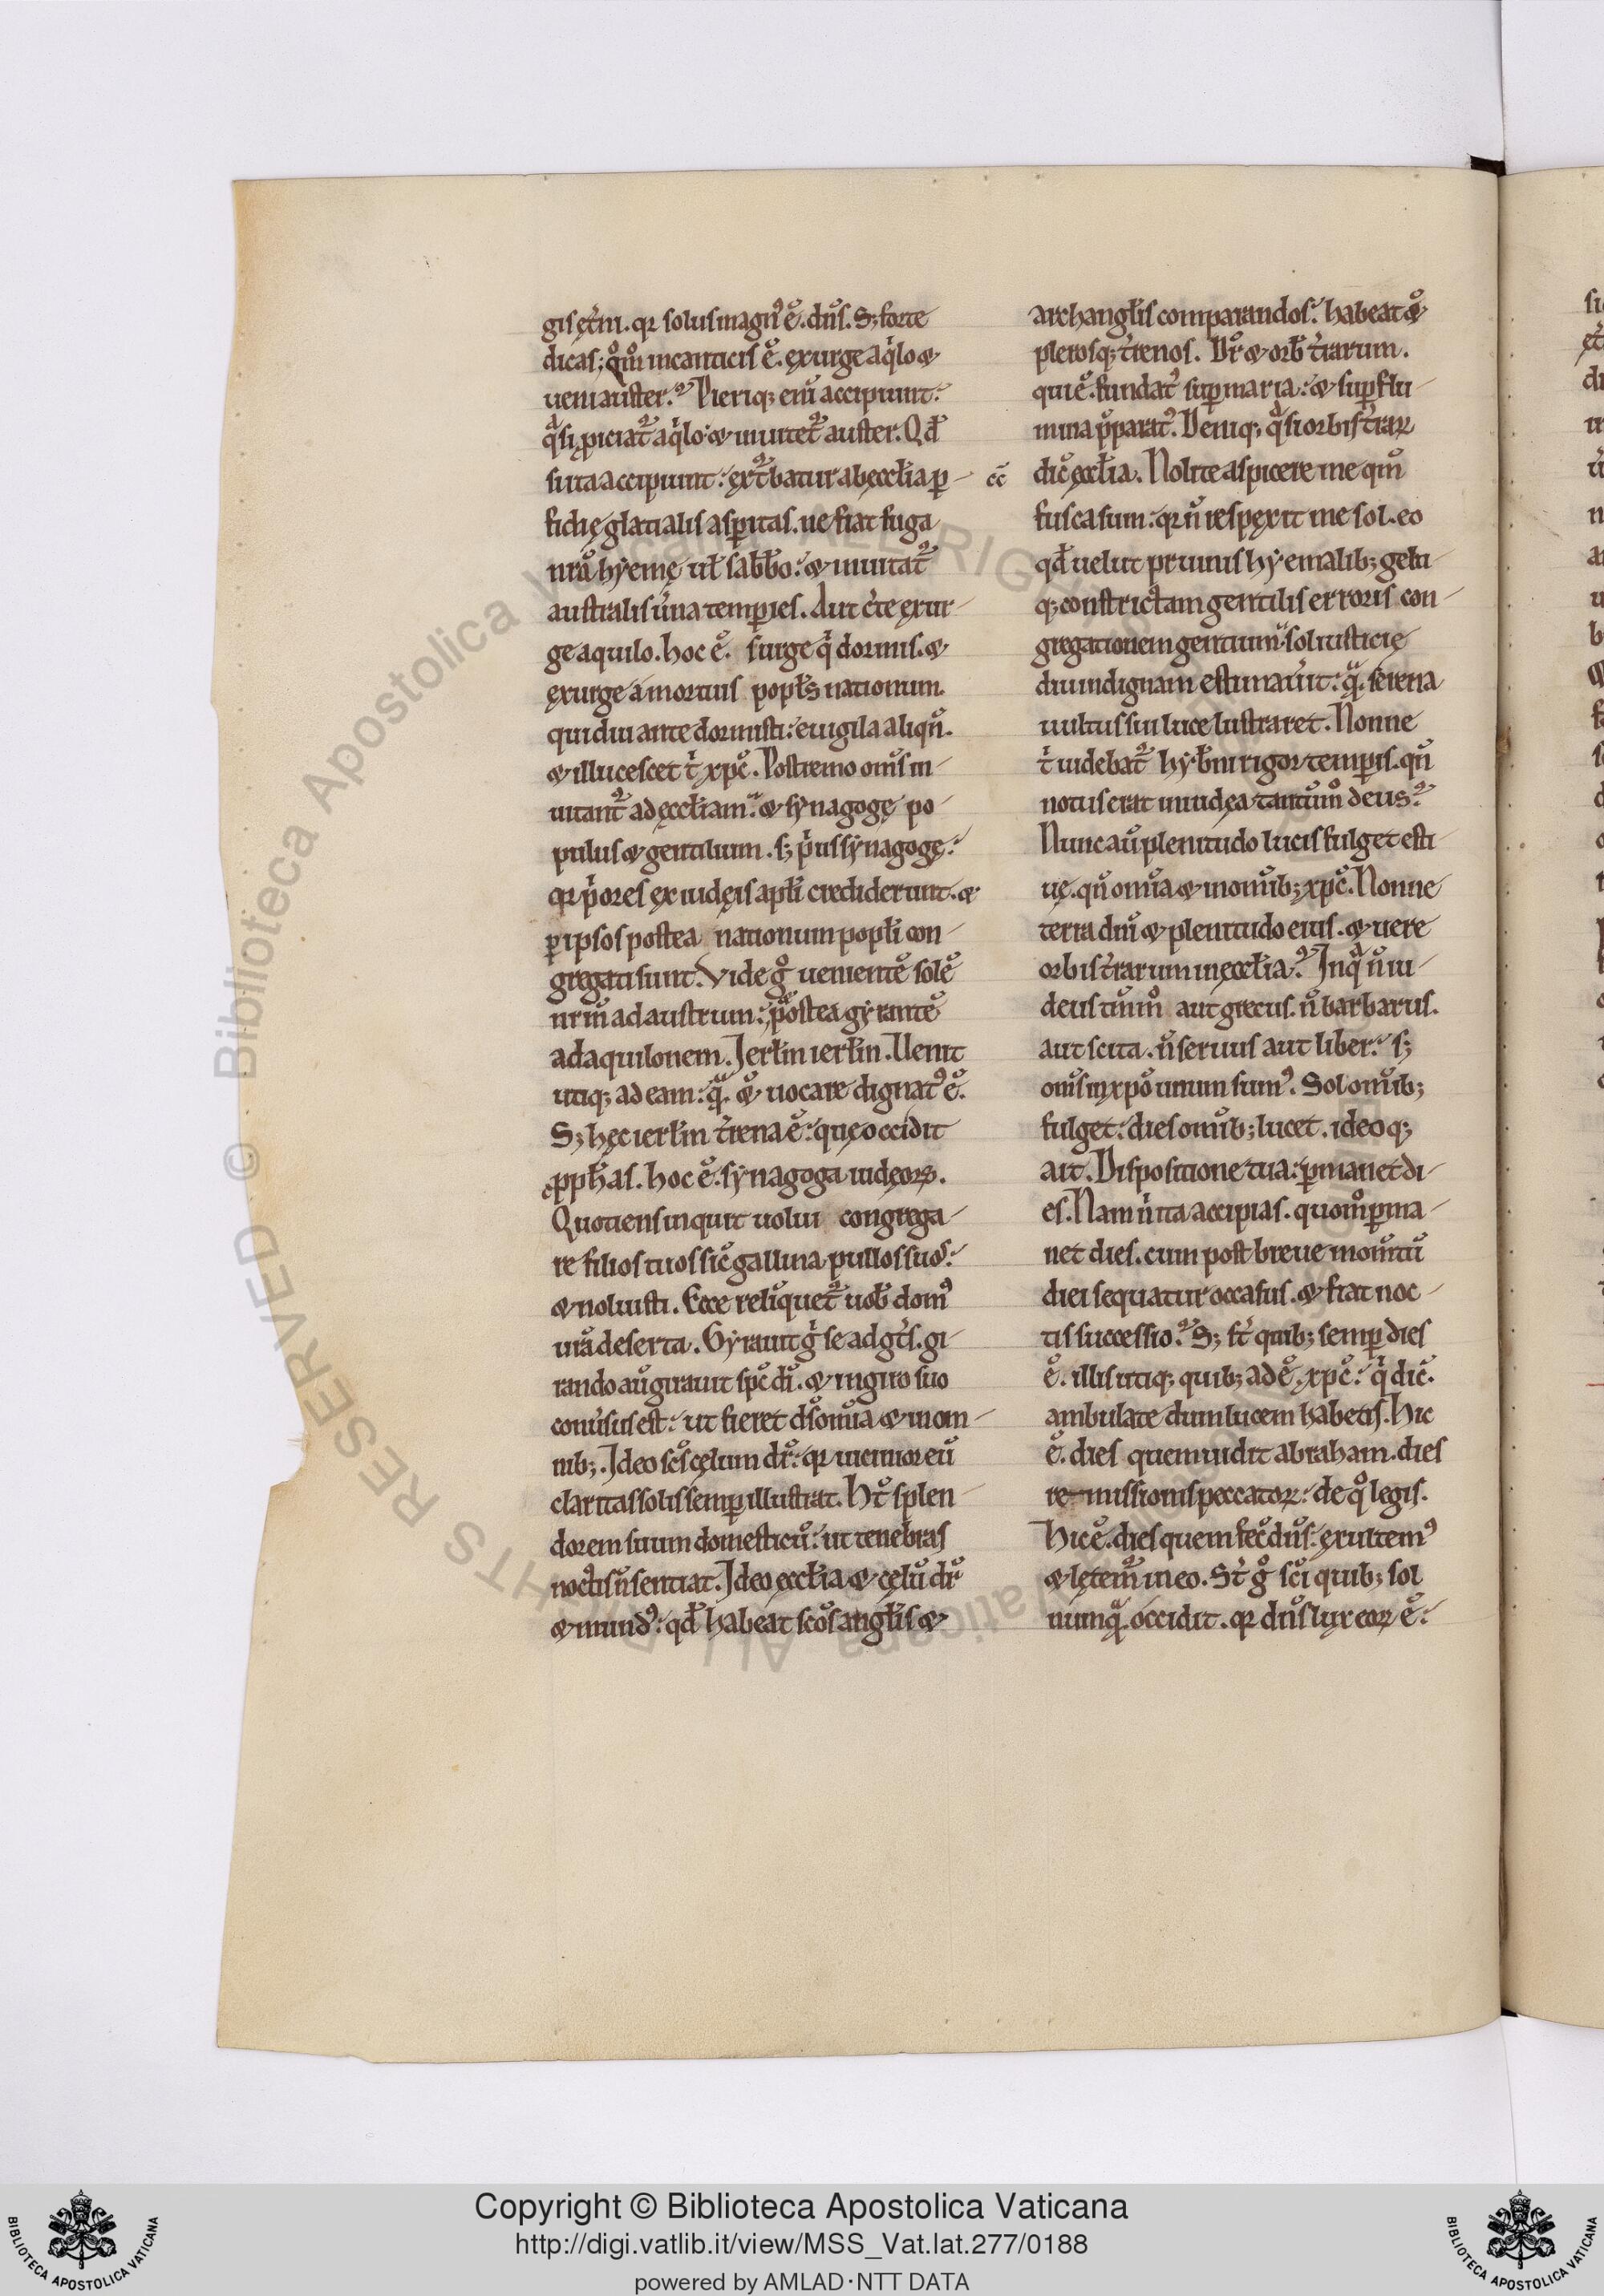 gis ęt̾ni. qr solus magn᷒ ē. dn̄s. S; forte
dicas; q̊m̄ in canticis ē. exurge aq̍lo &
ueni auster.ˀ Pleriq; eni̅ accipiunt.
q̍si p̱iciat᷑ aq̍lo: & inuitet᷑ auster. Qd̄
si ita accipiunt: ext᷑batur ab ęccl̄ia p̱-
fidię glatialis asp̱itas. ue fiat fuga
nr̄a hyemę ul̄ sabb̄o: & inuitat᷑
australis u̾na temp̱ies. Aut c̾te exur-
ge aquilo. hoc ē. surge q̍ dormis. &
exurge a mortuis popl̄s nationum.
qui diu ante dormisti: euigila aliqn̄.
& illucescet t̍ xpc̄. Postremo om̄s in-
uitant᷑ ad ęccl̄iam: & synagogę po-
pulus & gentilium. s; p̍us synagogę:
qr p̍ores ex iudęis apl̄i crediderunt. &
p̱ ipsos postea nationum popl̄i con-
gregati sunt. Vide g̊ uenientē solē
nr̄m̄ ad austrum: postea gyrantē
ad aquilonem. Ierl̄m ierl̄m. Uenit
utiq; ad eam: q̄. & uocare dignat᷒ ē.
S; hęc ierl̄m t̾rena ē: quę occidit
p̱ph̄as. hoc ē. synagoga iudęorꝝ.
Quotiens inquit uolui congrega-
re filios tuos sic̄ gallina pullos suos:
& noluisti. Ecce relinquet᷑ uob̄ dom᷒
ur̄a deserta. Gyrauit g̍ se ad gt̾s. gi-
rando au̅ gyrauit spc̄ dī. & in giro suo
conu̾sus est: ut fieret ds̄ om̄ia & in om-
nib;. Ideo scōs cęlum dr̄: qr in eniore eū
claritas solis semp̱ illustrat. Ht̄ splen-
dorem suum domesticū: ut tenebras
noctis n̄ sentiat. Ideo ęccl̄ia & cęlū dr̄
& mund᷒: qd̄ habeat scōs angl̄is &
archangl̄is comparandos: habeat &
plerosq; t̾renos. Dr̄ & orb̄ t̾rarum.
qui ē. fundat᷒ sup̱ maria: & sup̱ flu-
mina p̄parat᷒. Deniq; q̍si orbis t̾raꝝ
cc̄
dic̄ ęccl̄ia. Nolite aspicere me qm̄
fusca sum: qr n̄ respexit me sol. eo
qd̄ uelut pruinis hyemalib; gelu
q; constrictam gentilis erroris con-
gregationem gentium: sol iusticię
diu indignam estimau̾it: q̄. serena
uultus sui luce lustraret. Nonne
t̍ uidebat᷑ hyb̾ni rigor temp̱is. qn̄
notus erat in iudęa tantum̊ deus.ˀ
Nunc au̅ plenitudo lucis fulget esti
uę. qn̄ om̄ia & in om̄ib; xpc̄. Nonne
terra dn̄i & plenitudo eius. & uere
orbis t̾rarum in ęccl̄ia.ˀ In q̍ n̄ iu-
deus tm̄m̊ aut grecus. n̄ barbarus.
aut scita. n̄ seruus aut liber: s;
om̄s in xpō unum sum᷒. Sol om̄ib;
fulget: dies om̄ib; lucet. ideoq;
ait. Dispositione tua: p̱manet di-
es. Nam n̍ ita accipias. quom̊ p̱ma-
net dies. cum post breue mom̄tū
diei sequatur occasus. & fiat noc-
tis successio.ˀ S; st̾ quib; semp̱ dies
ē. illis utiq; quib; ad ē. xpc̄: q̍ dic̄.
ambulate dum lucem habetis. Hic
ē. dies quem uidit abraham. dies
remissionis peccatoꝝ: de q̊ legis.
Hic ē. dies quem fec̄ dn̄s: exultem᷒
& lętem᷑ in eo. St̾ g̊ sc̄i quib; sol
numq̄. occidit. qr dn̄s lux eoꝝ ē:
Copyright © Biblioteca Apostolica Vaticana
http://digi.vatlib.it/view/MSS_Vat.lat.277/0188
powered by AMLAD·NTT DATA